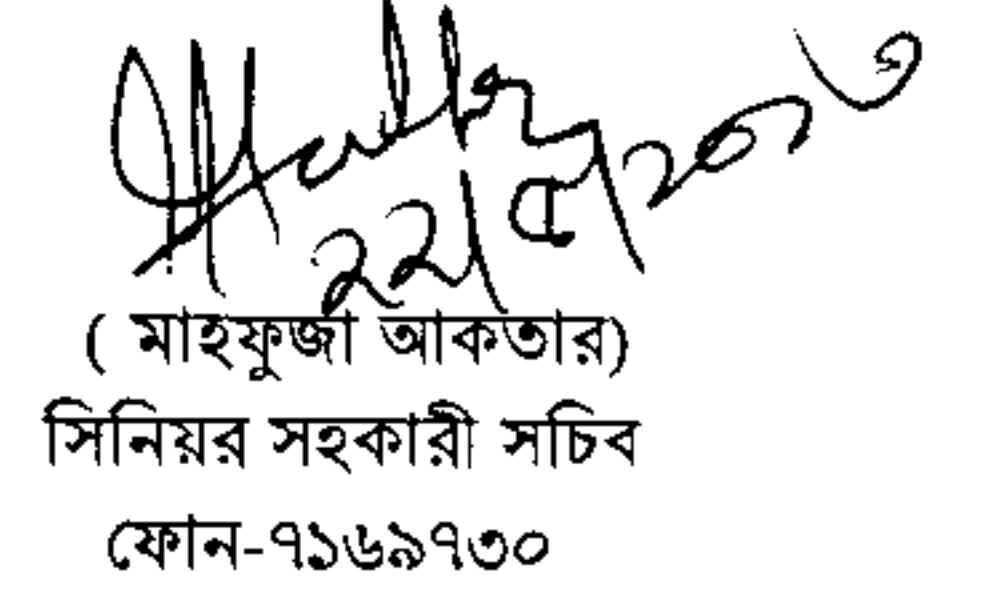 ২২/৫/২০১৩
( মাহফুজা আকতার)
সিনিয়র সহকারী সচিব
ফোন-৭১৬৯৭৩০